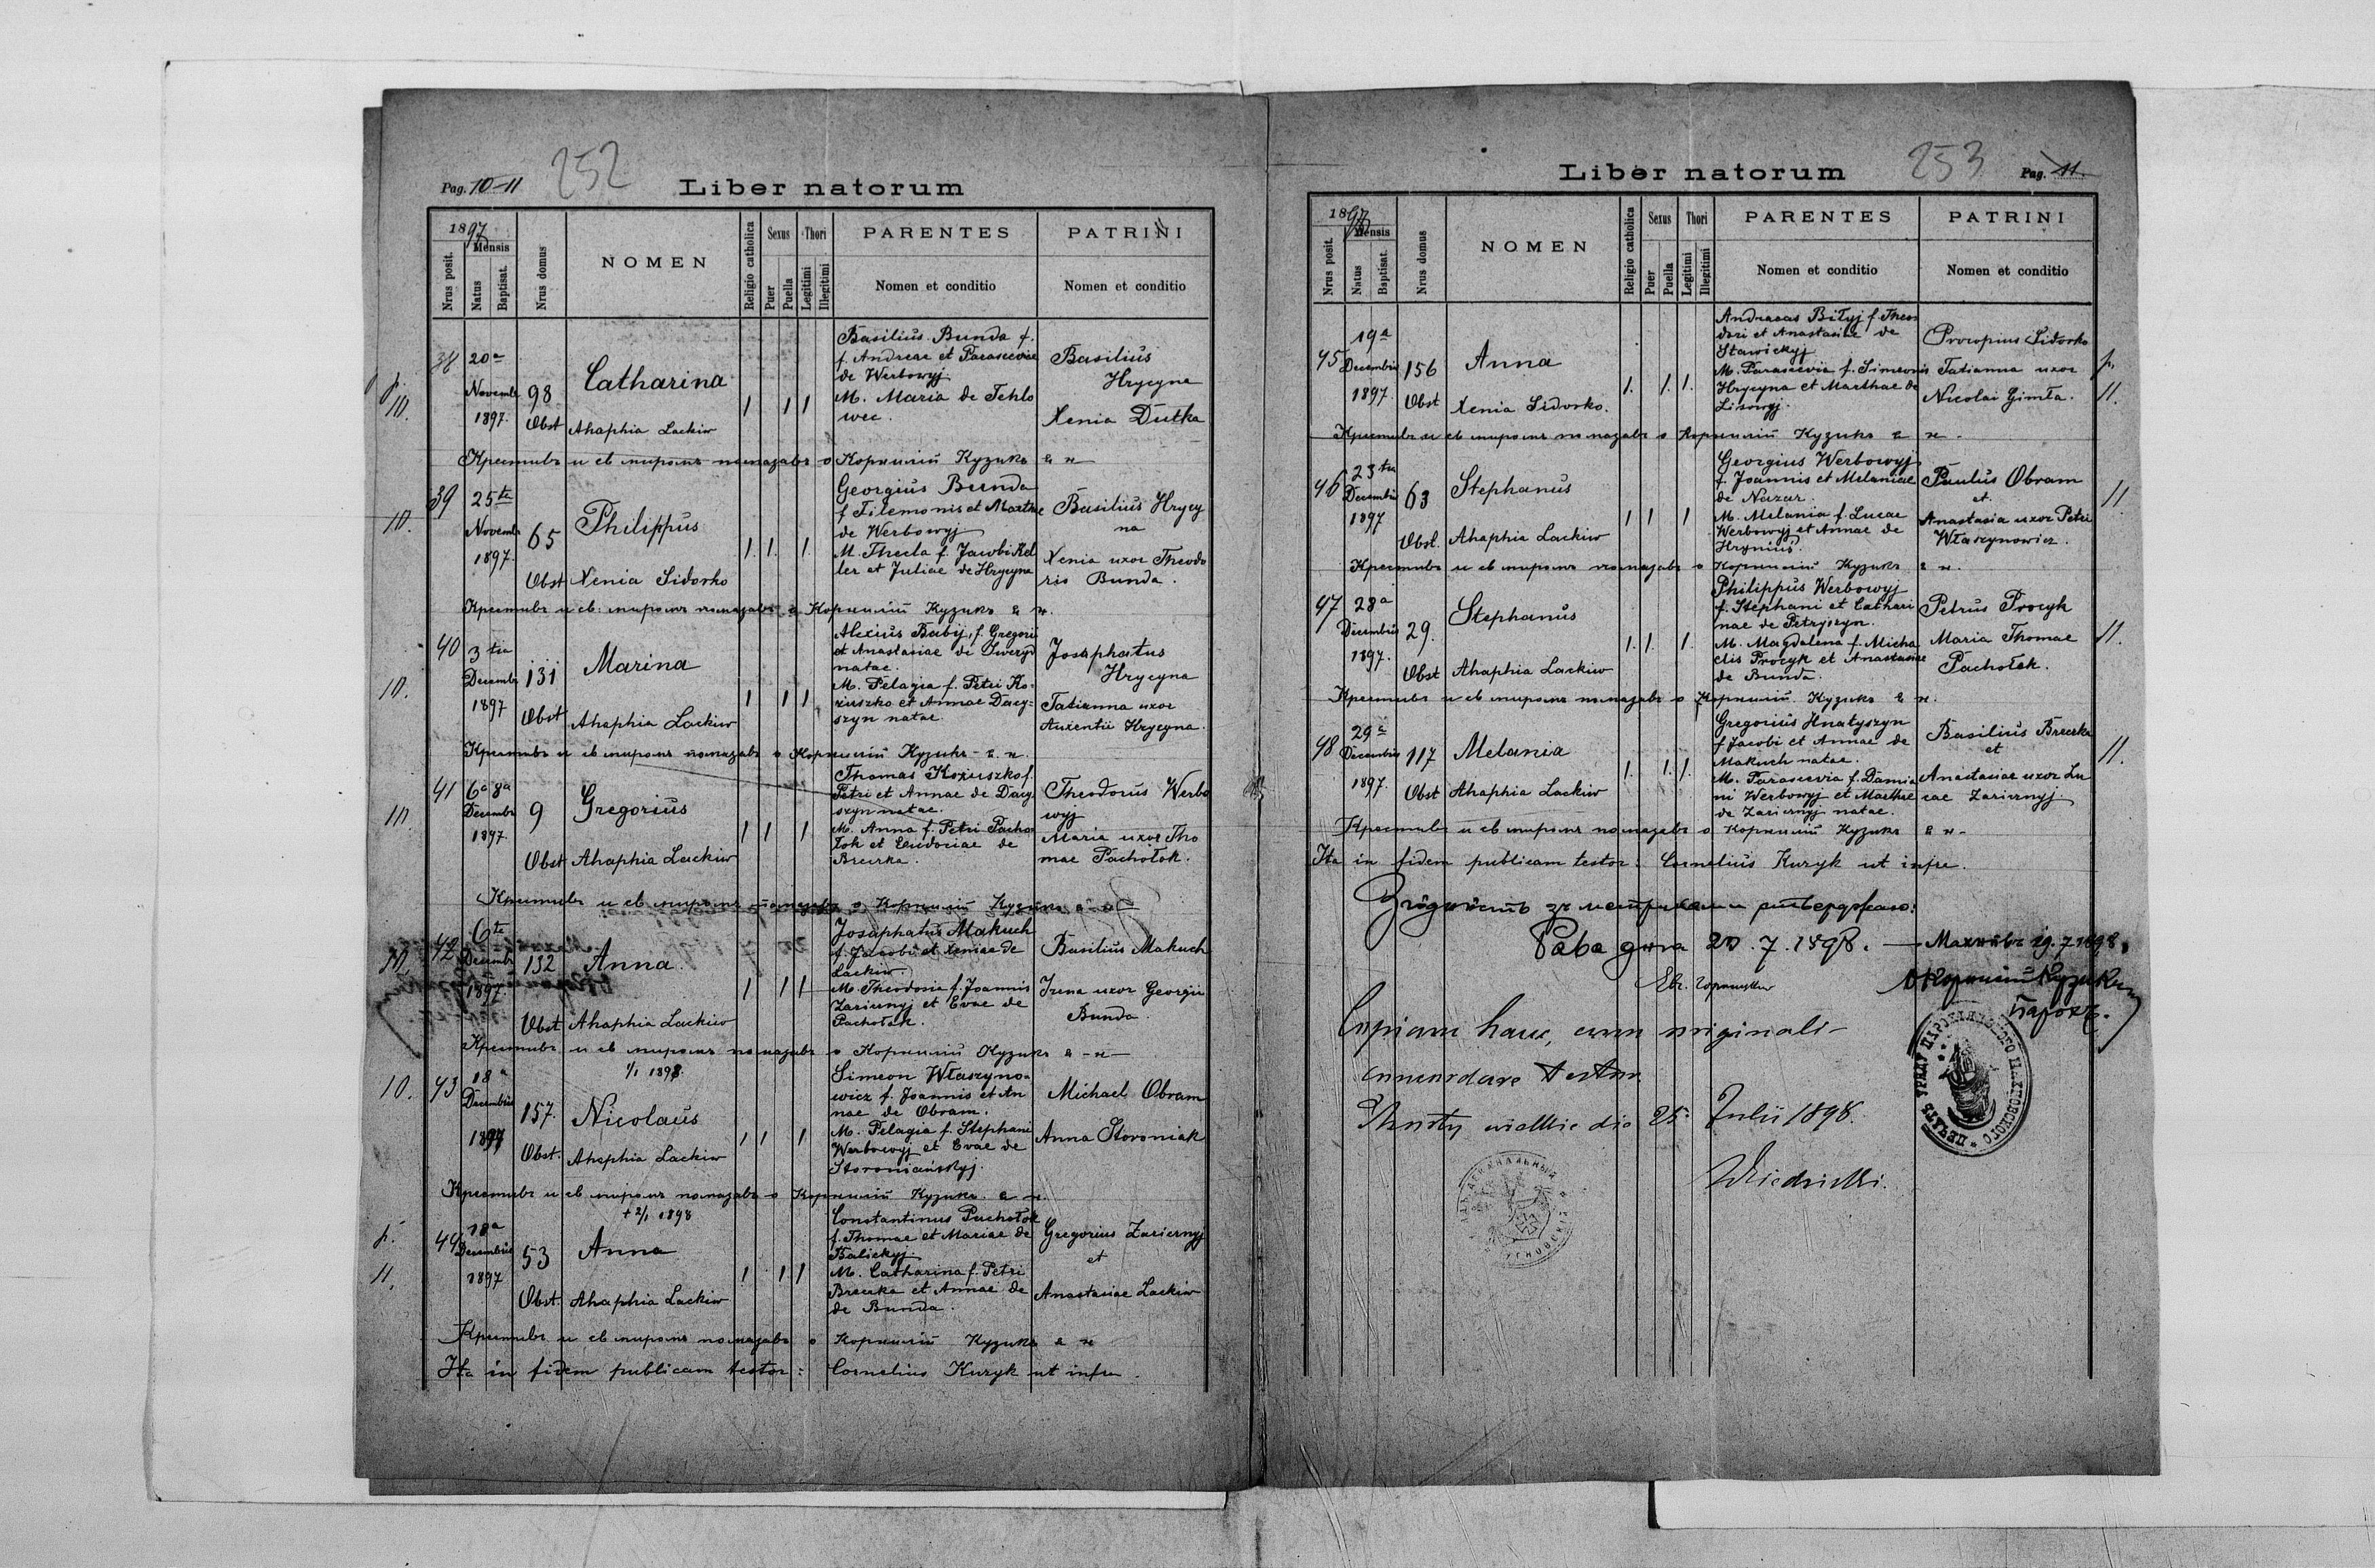 Pag. 10-11
252
Liber natorum
1897
Mensis
Nrus posit.
Natus
Baptisat.
Nrus domus
NOMEN
Religio catholica
Sexus
Puer
Puella
Thori
Legitimi
Illegitimi
PARENTES
Nomen et conditio
PATRINI
Nomen et conditio
10.
38
20a
Novembr
1897.
98
Catharina
Obst Ahaphia Lackiw
1 1 1
Basilius Bunda f.
f. Andreae et Parasceviae
de Werbowyj
M. Maria de Tehlo
wec.
Basilius
Hrycyna
Xenia Dutka
Крестивъ и св. миромъ помазавъ о Корнилій Кузикъ
10.
39
25ta
Novembr
1897.
65
Philippus
Obst Xenia Sidorko
1. 1. 1.
Georgius Bunda
f Filemonis et Marthae
de Werbowyj
M. Thecla f. Jacobi Kel
ler et Juliae de Hrycyna
Basilius Hrycy
na
Xenia uxor Theodo
ris Bunda.
Крестивъ и св. миромъ помазавъ о Корнилій Кузикъ
10.
40
3tia
Decembr
1897
131
Marina
Obst Ahaphia Lackiw
1 1 1
Alexius Babij, f. Gregorii
et Anastasiae de
natae.
M. Pelagia f. Petri Ko-
żuszko et Annae Dacy-
szyn natae
Josaphatus
Hrycyna
Tatianna uxor
Auxentii Hrycyna.
Крестивъ и св миромъ помазавъ о Корнилій Кузикъ
10.
41
6a 8a
Decembr
1897.
9
Gregorius
Obst Ahaphia Lackiw
1 1 1
Thomas Kożuszko f.
Petri et Annae de Dacy
szyn natae.
M. Anna f. Petri Pacho
łok et Eudociae de
Brecrka.
Theodorus Werbo
wyj
Maria uxor Tho
mae Pachołok.
Крестивъ и св миромъ помазавъ о Корнилій Кузикъ
10.
42
6ta
Decembr
1897.
132
Anna.
Obst Ahaphia Lackiw
1 1 1
Josaphatus Makuch
f. Jacobi et Xeniae de
Lackiw.
M. Theodosia f. Joannis
Zariunyj et Evae de
Pachołok.
Basilius Makuch
Irena uxor Georgii
Bunda.
Крестивъ и св миромъ помазавъ о Корнилій Кузикъ
10.
43
18a
Decembris
1897
1/1 1898
157.
Nicolaus
Obst. Ahaphia Lackiw
1 1 1
Simeon Właszyno-
wicz f. Joannis et An
nae de Obram.
M. Pelagia f. Stephani
Werbowyj et Evae de
Storoniańskyj.
Michael Obram
Anna Storoniak
Крестивъ и св миромъ помазавъ о Корнилій Кузикъ
11.
44
18a
Decembris
1897
+ 2/1 1898
53
Anna
Obst. Ahaphia Lackiw
1 1 1
Constantinus Pachołok
f. Thomae et Mariae de
Balickyj.
M. Catharina f. Petri
Brecrka et Annae de
de Bunda.
Gregorius Zariernyj
et
Anastasiae Lackiw
Крестивъ и св миромъ помазавъ о Корнилій Кузикъ
Ita in fidem publicam testor: Cornelius Kuzyk ut infra.
Liber natorum
253
Pag. 11.
1897
Mensis
Nrus posit.
Natus
Baptisat.
Nrus domus
NOMEN
Religio catholica
Sexus
Puer
Puella
Thori
Legitimi
Illegitimi
PARENTES
Nomen et conditio
PATRINI
Nomen et conditio
45
19a
Decembris
1897.
156
Anna
Obst Xenia Sidorko.
1. 1. 1.
Andreas Biłyj f. Theo
dori et Anastasiae de
Stawickyj
M. Parascevia f. Simeonis
Hrycyna et Marthae de
Lisowyj.
Procopius Sidorko
Tatianna uxor
Nicolai Gimta.
11.
Крестивъ и св миромъ помазавъ о Корнилій Кузикъ
46
23tia
Decembris
1897
63
Stephanus
Obst. Ahaphia Lackiw
1 1 1
Georgius Werbowyj
f. Joannis et Melaniae
de Nazar.
M. Melania f. Lucae
Werbowyj et Annae de
Hryniuś.
Paulus Obram
et
Anastasia uxor Petri
Właszynowicz.
11.
Крестивъ и св миромъ помазавъ о Корнилій Кузикъ
47
28a
Decembris
1897.
29.
Stephanus
Obst Ahaphia Lackiw
1. 1. 1.
Philippus Werbowyj
f. Stephani et Cathari
nae de Petryszyn.
M. Magdalena f. Micha
elis Procyk et Anastasiae
de Bunda.
Petrus Procyk
Maria Thomae
Pachołek.
11.
Крестивъ и св миромъ помазавъ о Корнилій Кузикъ
48
29a
Decembris
1897.
117
Melania
Obst Ahaphia Lackiw
1. 1. 1.
Gregorius Hnatyszyn
f Jacobi et Annae de
Makuch natae.
M. Parascevia f. Damia
ni Werbowyj et Marthae
de Zariernyj natae.
Basilius Brecrka
et
Anastasiae uxor Lu
cae Zariernyj.
11.
Крестивъ и св миромъ помазавъ о Корнилій Кузикъ
Ita in fidem publicam testor: Cornelius Kuzyk ut infra.
Рава дня 20. 7. 1898.
Махнівъ 19. 7 1898.
о Корнилій Кузикъ
Парохъ.
Copiam hanc, cum originali
concordare testor.
die 25. Julii 1898.